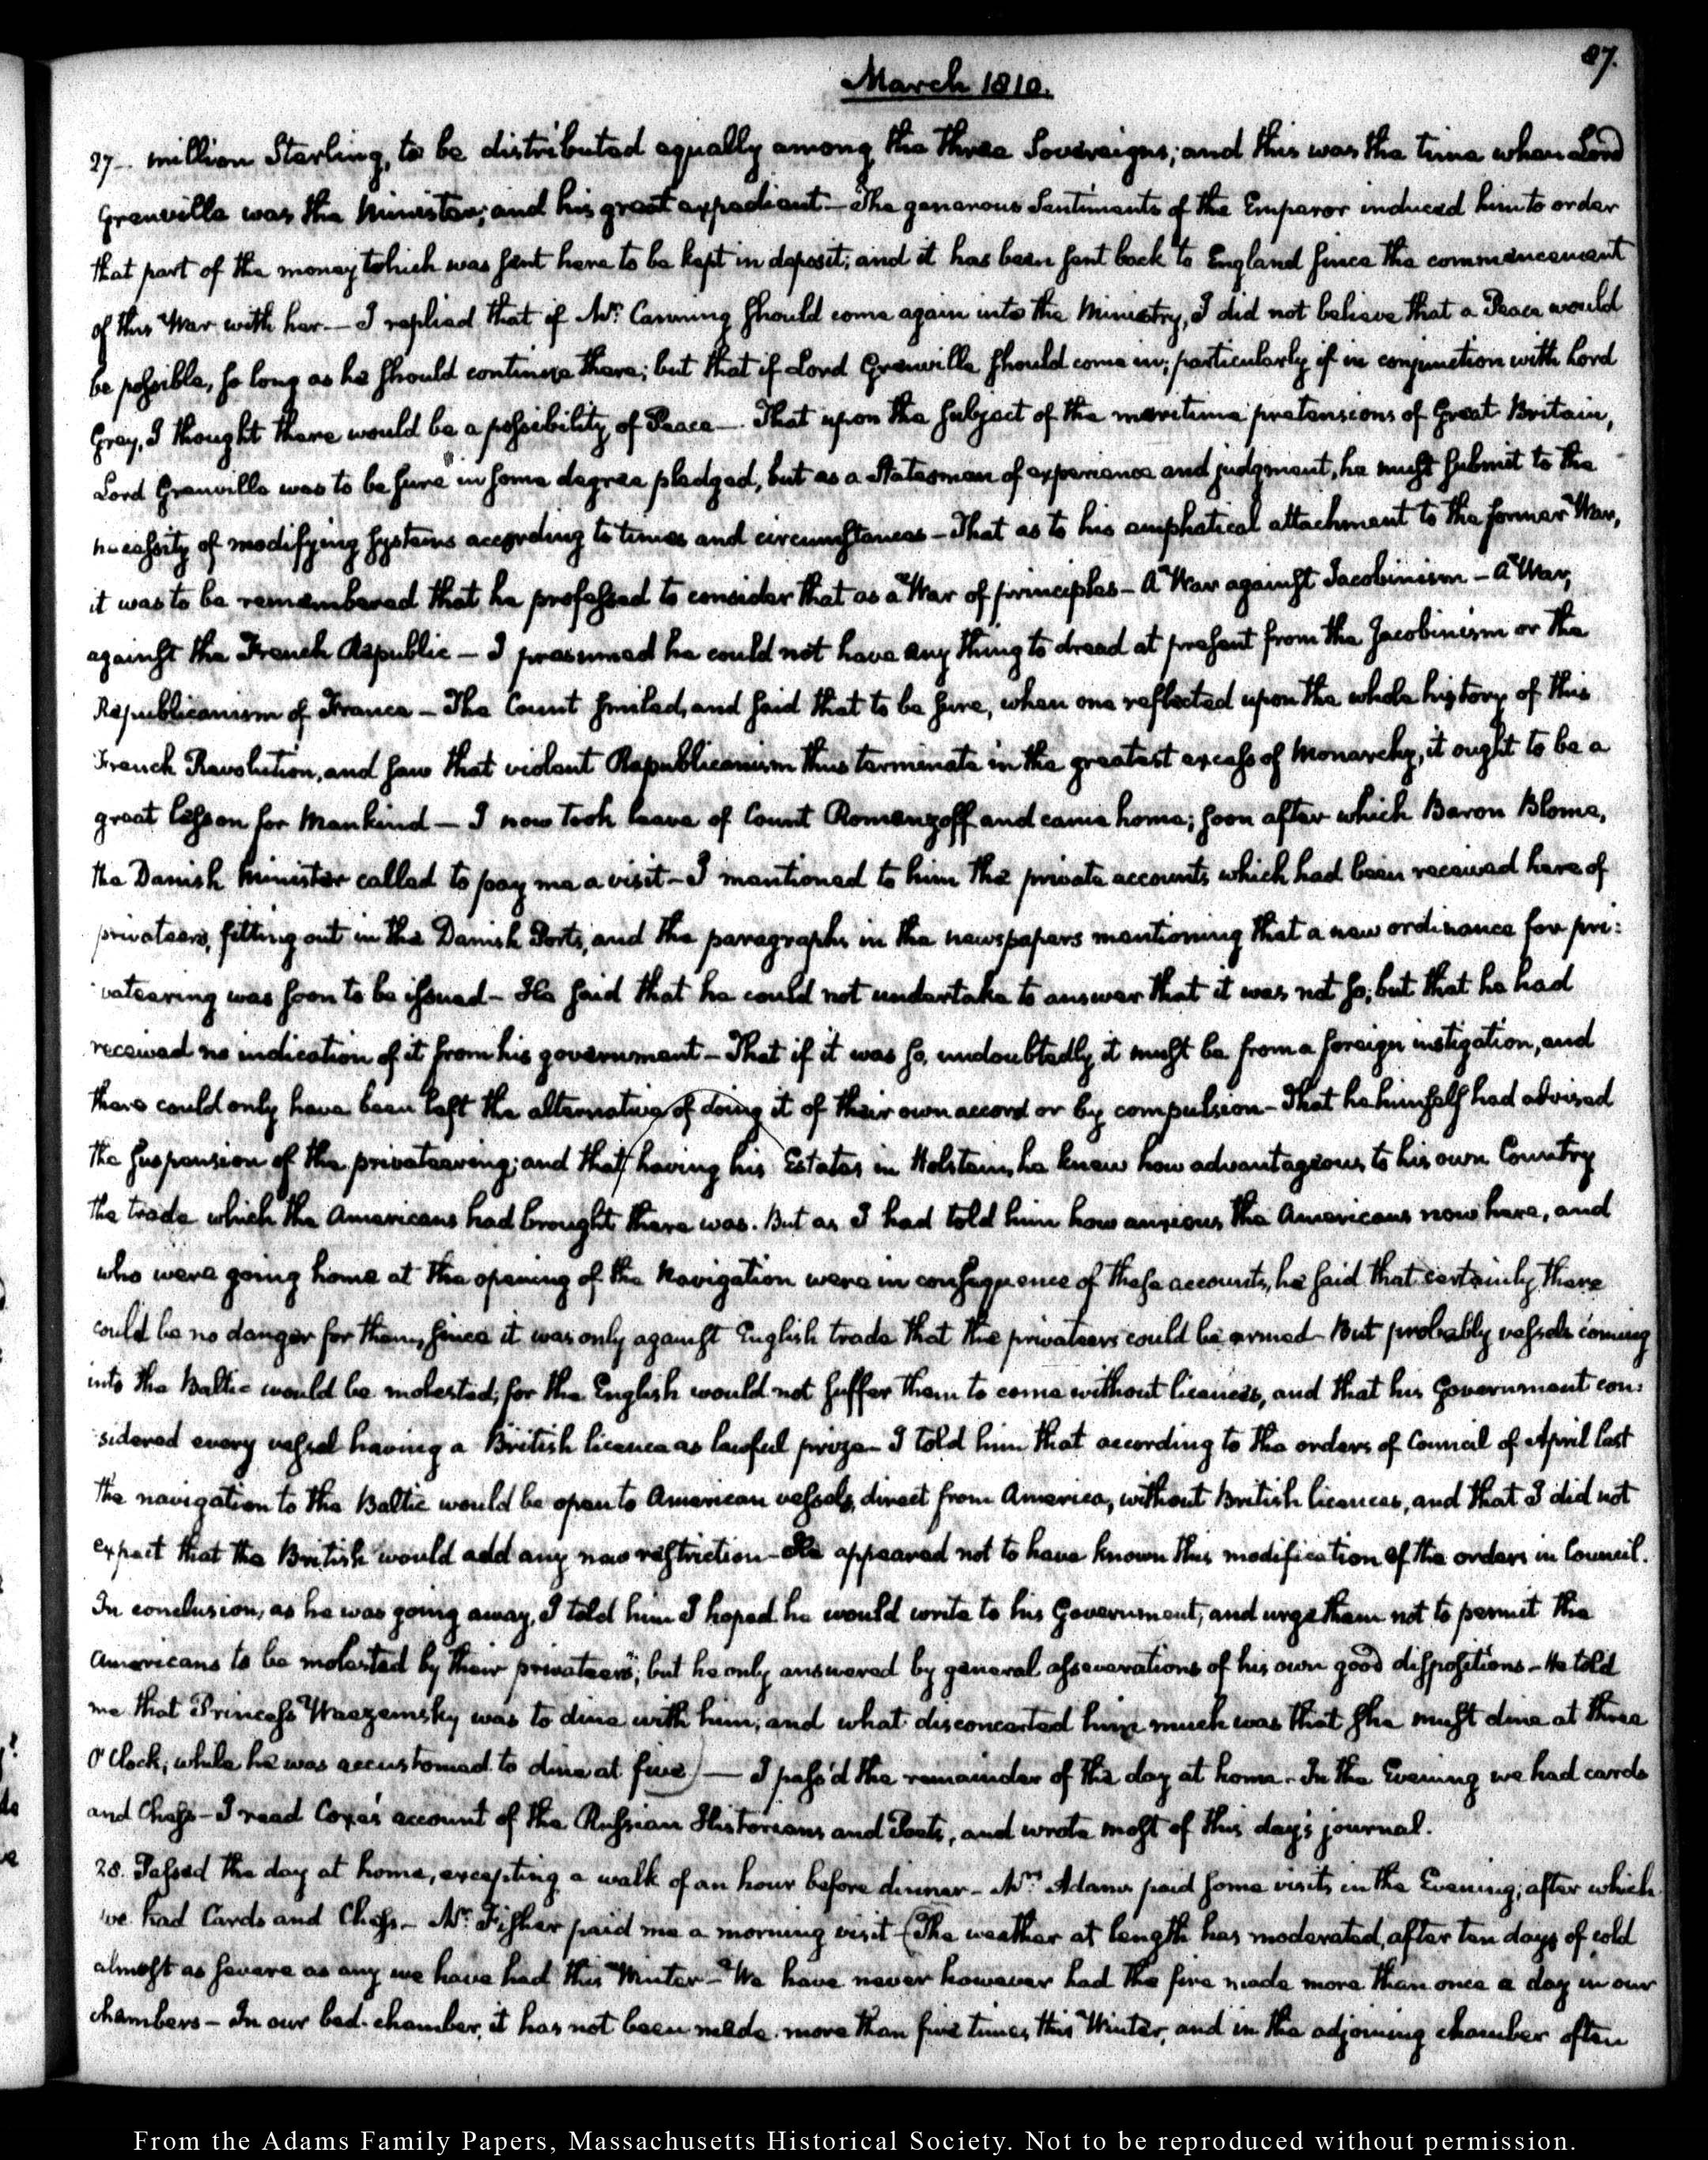 87.
March 1810.
27— million Sterling, to be distributed equally among the three Sovereigns; and this was the time when Lord
Grenville was the Minister; and his great expedient— The generous Sentiments of the Emperor induced him to order
that part of the money which was sent here to be kept in deposit; and it has been sent back to England since the commencement
of this War with her— I replied that if Mr. Canning should come again into the Ministry, I did not believe that a Peace would
be possible, so long as he should continue there; but that if Lord Grenville should come in; particularly if in conjunction with Lord
Grey, I thought there would be a possibility of Peace— That upon the subject of the maritime pretensions of Great Britain,
Lord Grenville was to be sure in some degree pledged, but as a Statesman of experience and judgment, he must submit to the
necessity of modifying systems according to times and circumstances— That as to his emphatical attachment to the former War,
it was to be remembered that he professed to consider that as a War of principles— A War against Jacobinism— A War,
against the French Republic— I presumed he could not have any thing to dread at present from the Jacobinism or the
Republicanism of France— The Count smiled, and said that to be sure, when one reflected upon the whole history of this
French Revolution, and saw that violent Republicanism thus terminate in the greatest excess of Monarchy, it ought to be a
great lesson for Mankind— I now took leave of Count Romanzoff and came home; soon after which Baron Blome,
the Danish Minister called to pay me a visit— I mentioned to him the private accounts which had been received here of
privateers, fitting out in the Danish Ports, and the paragraphs in the newspapers mentioning that a new ordinance for pri:
vateering was soon to be issued— He said that he could not undertake to answer that it was not so; but that he had
received no indication of it from his government— That if it was so, undoubtedly it must be from a foreign instigation, and
there could only have been left the alternative of doing it of their own accord or by compulsion— That he himself had advised
the suspension of the privateering; and that (having his Estates in Holstein, he knew how advantageous to his own Country
the trade which the Americans had brought there was. But as I had told him how anxious the Americans now here, and
who were going home at the opening of the Navigation were in consequence of these accounts, he said that certainly there
could be no danger for them, since it was only against English trade that the privateers could be armed— But probably vessels coming
into the Baltic would be molested; for the English would not suffer them to come without licences, and that his Government con:
sidered every vessel having a British licence as lawful prize— I told him that according to the orders of Council of April last
the navigation to the Baltic would be open to American vessels, direct from America, without British licences, and that I did not
expect that the British would add any new restriction— He appeared not to have known this modification of the orders in Council.
In conclusion, as he was going away, I told him I hoped he would write to his Government, and urge them not to permit the
Americans to be molested by their privateers; but he only answered by general asseverations of his own good dispositions— He told
me that Princess Waezemsky was to dine with him; and what disconcerted him much was that she must dine at three
O'Clock; while he was accustomed to dine at five)— I pass'd the remainder of the day at home. In the Evening we had cards
and Chess— I read Coxe's account of the Russian Historians and Poets, and wrote most of this day's journal.
28. Passed the day at home, excepting a walk of an hour before dinner— Mrs. Adams paid some visits in the Evening; after which
we had Cards and Chess— Mr. Fisher paid me a morning visit— (The weather at length has moderated, after ten days of cold
almost as severe as any we have had this Winter— We have never however had the fire made more than once a day in our
chambers— In our bed-chamber, it has not been made more than five times this Winter, and in the adjoining chamber often
From the Adams Family Papers, Massachusetts Historical Society. Not to be reproduced without permission.